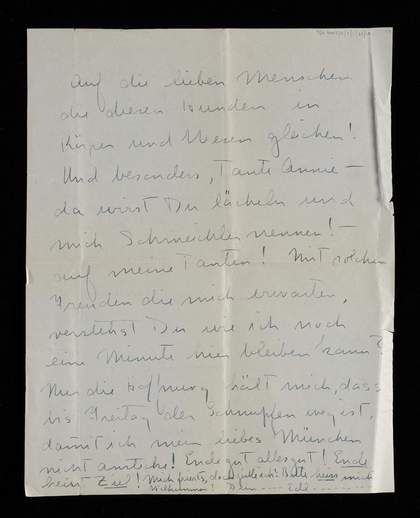 auf die lieben Menschen
die diesen in
Körper und Wesen gleichen!
Und besonders, Tante Annie –
da wirst Du lächeln und
mich Schmeichler nennen! –
auf meine Tanten! Mit solchen
Freuden die mich erwarten,
verstehst Du wie ich noch
eine Minute hier bleiben kann?
Nur die Hoffnung hält mich, dass
bis Freitag der Schnupfen weg ist,
damit ich mein liebes München
nicht anstecke! Ende gut alles gut! Ende
heisst Ziel! Mich Bitte heiss mich
Willkommen! Dein